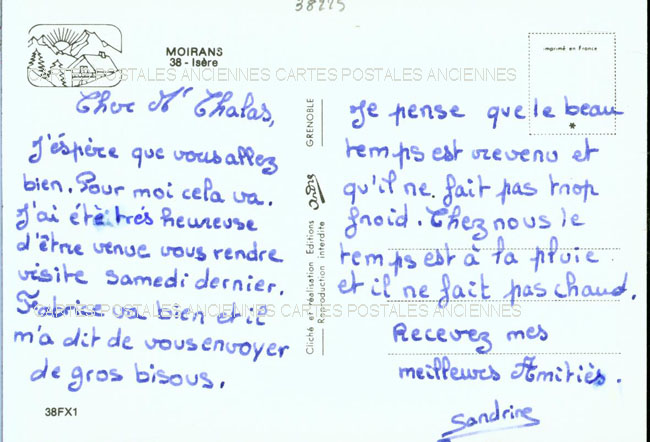 38225
MOIRANS
38 - Isère
imprimé en France
CARTES POSTALES ANCIENNES CARTES POSTALES ANCIENNES
Cher Mr Thalas,
J'éspère que vous allez
bien. Pour moi cela va.
J'ai été trés heureuse
d'être venue vous rendre
visite samedi dernier.
Fabrice va bien et il
m'a dit de vous envoyer
de gros bisous.
38FX1
GRENOBLE
Cliché et réalisation Editions André
Reproduction interdite
Je pense que le beau
temps est revenu et
qu'il ne fait pas trop
froid. Chez nous le
temps est à la pluie
et il ne fait pas chaud.
CARTES POSTALES ANCIENNES CARTES POSTALES ANCIENNES
Recevez mes
meilleures Amitiès.
Sandrine